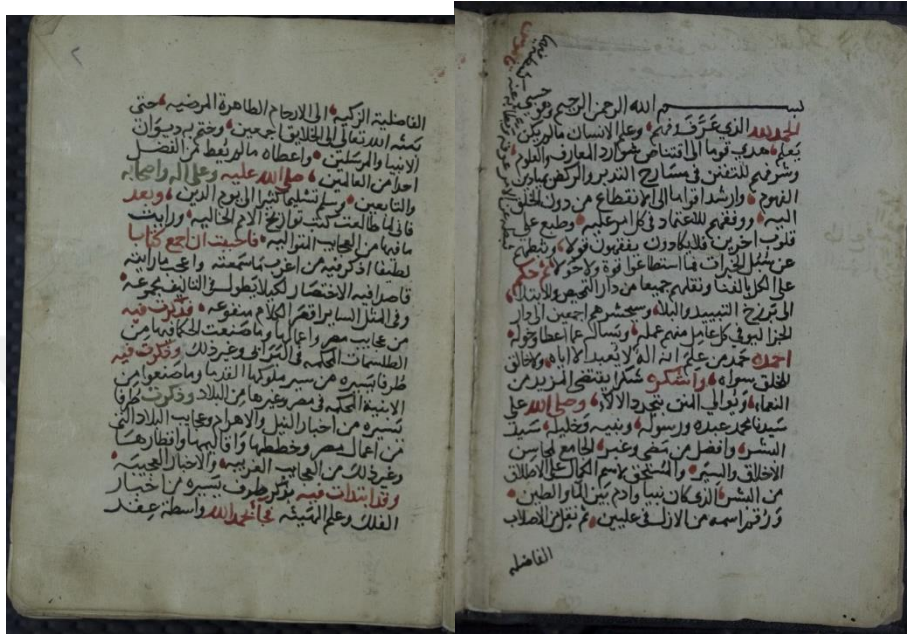 بسم الله الرحمن الرحيم
الحمد لله الذي عرف وفهم وعلم الانسان مالم يكن
يعلم هدي قوما الى اقتناص شوارد المعارف والعلوم
وشوقهم للتفنن في مسارح التدبر والركض بميادين
الفهوم وارشد اقواما الى الانقطاع من دون الخلق
اليه ووفقهم للاعتماد في كل امر عليه وطبع على
قلوب اخرين فلا يكادون يفقهون قولا وثبطهم
عن سبل الخيرات فما استطاعوا قوة ولا حولا ثم حكم
على الكل بالفنا ونقلهم جميعا من دار التمحيص والابتلا
الى برزخ التبييد والبلا وسيحشرهم اجمعين الى دار
الجزا ليوفي كل عامل منهم عمله ويساله عما اعطاه وخوله
احمده حمد من علم انه اله لا نعبد الا اياه ولا خالق
للخلق سواه واشكره شكرا يقتضي المزيد من
النعما ويوالي المنن بتجدد الالا وصلى الله على
سيدنا محمد عبده ورسوله ونبيه وخليله سيد
البشر وافضل من مضى وغبر الجامع لمحاسن
الاخلاق والسير والمستحق لاسم الكمال على الاطلاق
من البشر الذي كان نبيا وادم بين الما والطين
ورقم اسمه من الازل في عليين ثم نقل من الاصلاب
الفاضله
٢
الفاضلية الزكيه الى الارحام الطاهرة المرضيه حتى
بعثه الله تعالى الى الخلايق اجمعين وختم به ديوان
الانبيا والمرسلين واعطاه مالم يعط من الفضل
احدا من العالمين صلى الله عليه وعلى اله واصحابه
والتابعين وسلم تسليما كثيرا الى يوم الدين وبعد
فاني لما طالعت كتب تواريخ الامم الخاليه ورايت
ما فيها من العجايب المتواليه فاحببت ان اجمع كتابا
لطيفا اذكر فيه من اغرب ما سمعته واعجب ما رايته
قاصرا فيه الاختصار لكيلا يطول في التاليف مجموعه
وفي المثل الساير اقصر الكلام منفوعه فذكرت فيه
من عجايب مصر واعمالها وما صنعت الحكما فيها من
الطلسمات المحكمه في البرابي وغير ذلك وذكرت فيه
طرفا يسيره من سير ملوكها القدما وما صنعوا من
الابنية المحكمه في مصر وغيرها من البلاد وذكرت طرفا
يسيره من اخبار النيل والاهرام وعجايب البلاد التي
من اعمال مصر وخططها واقاليمها واقطارها
وغير ذلك من العجايب الغريبه والاخبار العجيبة
وقد ابتدات فيه بذكر طرف يسيره من اخبار
الفلك وعلم الهيئه فجا بحمد الله واسطة عقد